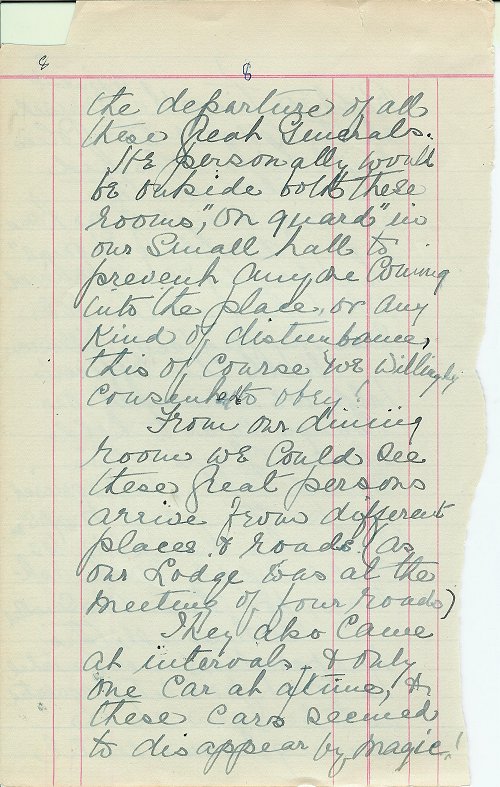 8 8
the departure of all
these great Generals.
He personally would
be outside both these
rooms, "on guard" in
our small hall to
prevent anyone coming
into the place, or any
kind of disturbance,
this of course we willingly
consented to obey!
From our dining
room we could see
these great persons
arrive from different
places & roads (as
our Lodge was at the
meeting of four roads)
They also came
at intervals & only
one car at a time, &
these cars seemed
to disappear by magic!